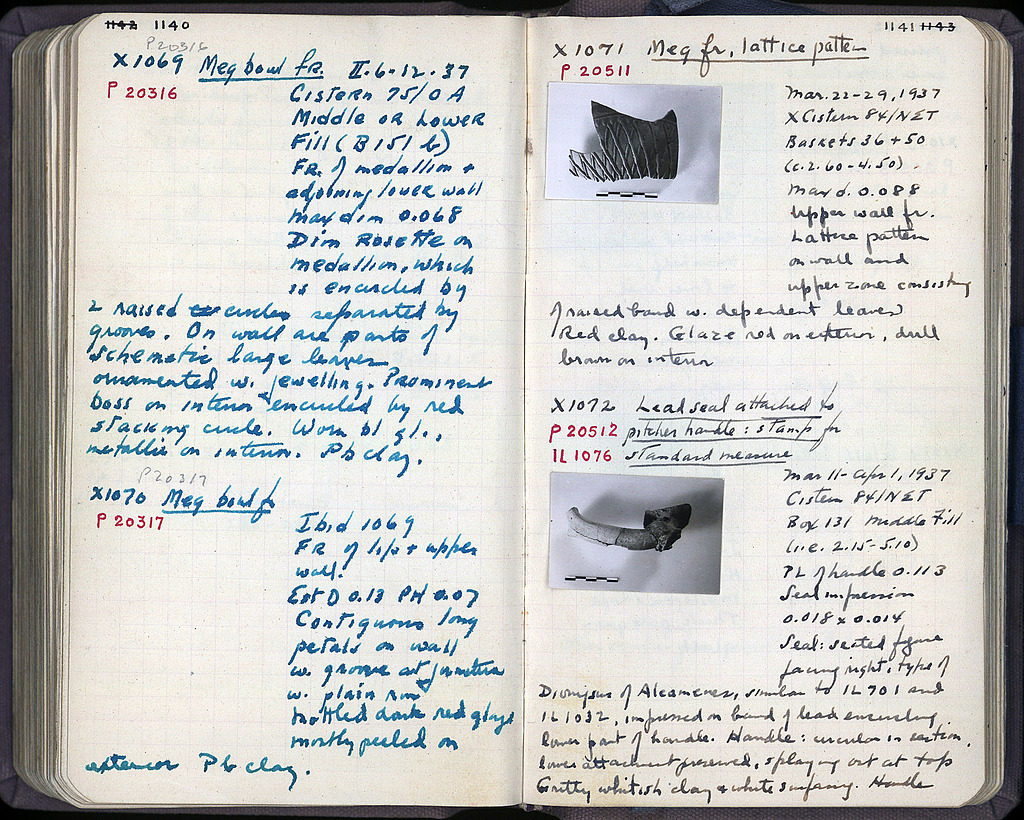 1142 1140
P 20316
X1069 Meg bowl fr. II.6-12.37
P 20316
Cistern 75/0 A
Middle or Lower
Fill (B 151 b)
Fr. of medallion +
adjoining lower wall
Max dim 0.068
Dim Rosette on
medallion, which
is encircled by
2 raised circles separated by
grooves. On wall are parts of
schematic large leaves
ornamented w. jewelling. Prominent
boss on interior encircled by red
stacking circle. Worn bl gl.,
metallic on interior. Pb clay.
P 20317
X1070 Meg bowl fr
P 20317
Ibid 1069
Fr of lip + upper
wall.
Est D 0.13 PH 0.07
Contiguous long
petals on wall
w. groove at juncture
w. plain rim
Mottled dark red glaze
mostly peeled on
exterior Pb clay.
1141 1143
X1071 Meg fr, lattice pattern
P 20511
Mar. 22-29, 1937
X Cistern 84/NET
Baskets 36 + 50
(c. 2.60-4.50).
Max d. 0.088
Upper wall fr.
Lattice pattern
on wall and
upper zone consisting
of raised band w. dependent leaves
Red clay. Glaze red on exterior, dull
brown on interior
X1072 Lead seal attached to
P 20512 pitcher handle: stamp for
IL 1076 standard measure
Mar 11-Apr 1, 1937
Cistern 84/NET
Box 131 Middle Fill
(i.e. 2.15-5.10)
PL of handle 0.113
Seal impression
0.018 x 0.014
Seal: seated figure
facing right, type of
Dionysus of Alcamenes, similar to IL 701 and
IL 1032, impressed on band of lead encircling
lower part of handle. Handle: circular in section,
lower attachment preserved, splaying out at top
Gritty whitish clay & white surfacing. Handle